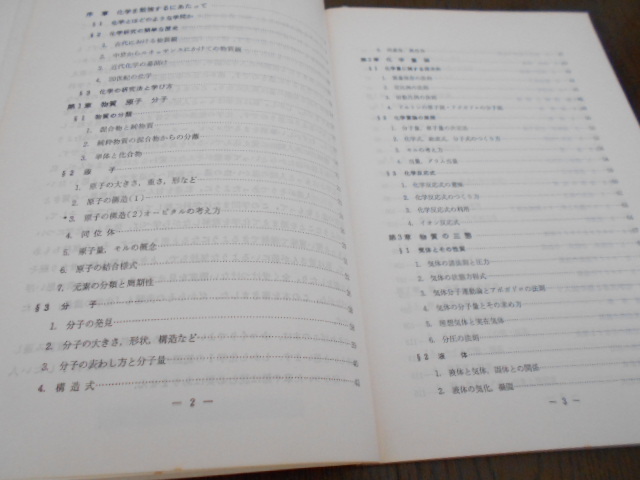 序章 化学を勉強するにあたって
§1 化学とはどのような学問か
§2 化学研究の簡単な歴史
1. 古代における物質観
2. 中世からルネッサンスにかけての物質観
3. 近代化学の幕開け
4. 20世紀の化学
§3 化学の研究法と学び方
第1章 物質 原子 分子
§1 物質の分類
1. 混合物と純物質
2. 純粋物質の混合物からの分離
3. 単体と化合物
§2 原子
1. 原子の大きさ,重さ,形など
2. 原子の構造(1)
3. 原子の構造(2)オービタルの考え方
4. 同位体
5. 原子量,モルの概念
6. 原子の結合様式
7. 元素の分類と周期性
§3 分子
1. 分子の発見
2. 分子の大きさ,形状,構造など
3. 分子の表わし方と分子量
4. 構造式
— 2 —
第2章 化学量論
3. 倍数比例の法則
4. ドルトンの原子説・アボガドロの分子説
§2 化学量論の基礎
2. 化学式,組成式,分子式のつくり方
3. モルの考え方
4. 当量,グラム当量
§3 化学反応式
1. 化学反応式の意味
2. 化学反応式のつくり方
3. 化学反応式の利用
4. イオン反応式
第3章 物質の三態
§1 気体とその性質
1. 気体の諸法則と圧力
2. 気体の状態方程式
3. 気体分子運動論とアボガドロの法則
4. 気体の分子量とその求め方
5. 理想気体と実在気体
6. 分圧の法則
§2 液体
1. 液体と気体,固体との関係
2. 液体の気化,凝固
— 3 —